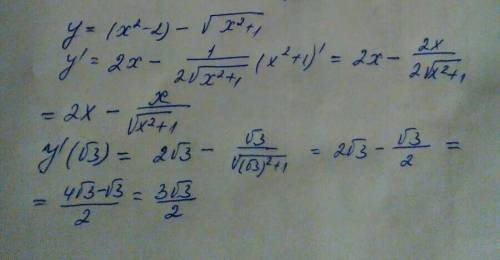 y = (x²-2) - √(x²+1)
y' = 2x - 1/(2√(x²+1)) (x²+1)' = 2x - 2x/(2√(x²+1))
= 2x - x/√(x²+1)
y'(√3) = 2√3 - √3/√((√3)²+1) = 2√3 - √3/2 =
= (4√3-√3)/2 = 3√3/2